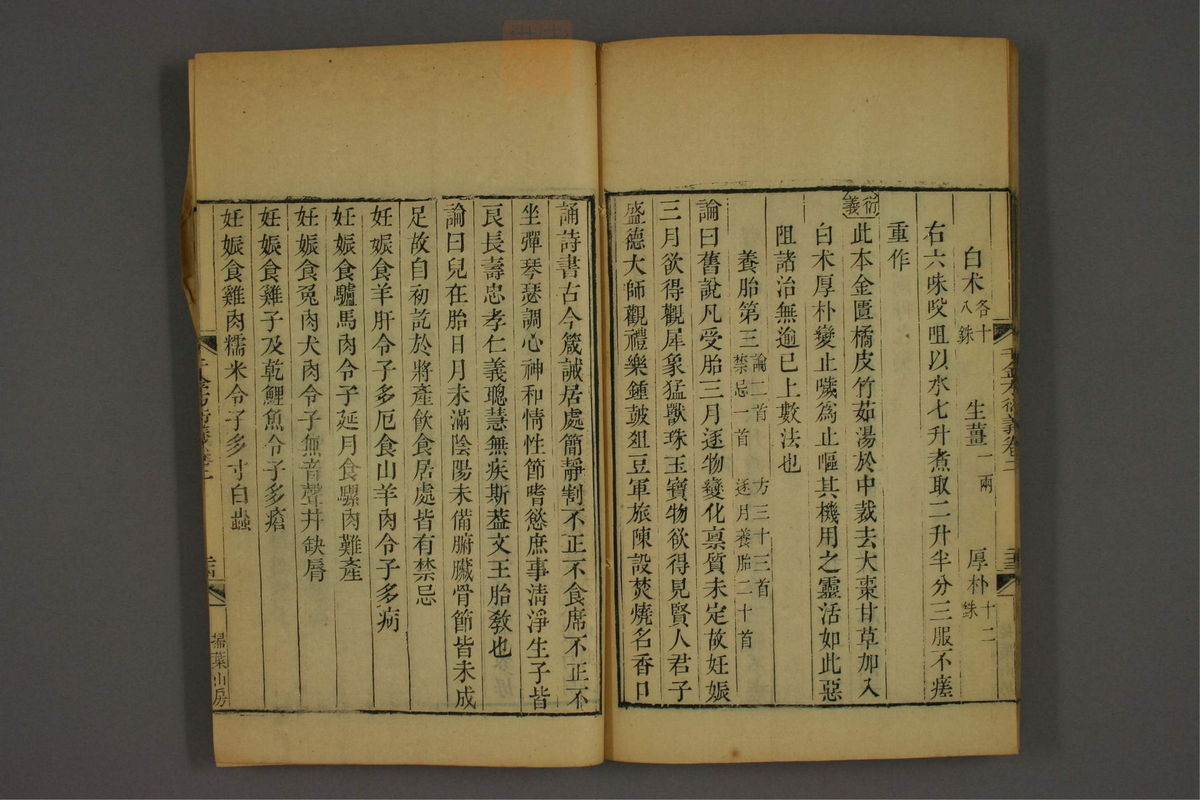 千金方衍義卷二
三三
白术各十八銖　生薑一兩　厚朴十二銖
右六味㕮咀以水七升煮取二升半分三服不瘥
重作
衍義此本金匱橘皮竹茹湯於中裁去大棗甘草加入
白术厚朴變止噦爲止嘔其機用之靈活如此惡
阻諸治無逾已上數法也
養胎第三論二首　方三十三首　禁忌一首　逐月養胎二十首
論曰舊說凡受胎三月逐物變化稟質未定故妊娠
三月欲得觀犀象猛獸珠玉寶物欲得見賢人君子
盛德大師觀禮樂鍾鼓爼豆軍旅陳設焚燒名香口
誦詩書古今箴誡居處簡靜割不正不食席不正不
坐彈琴瑟調心神和情性節嗜慾庶事淸淨生子皆
良長壽忠孝仁義聰慧無疾斯葢文王胎敎也
論曰兒在胎日月未滿陰陽未備腑臟骨節皆未成
足故自初訖於將產飲食居處皆有禁忌
妊娠食羊肝令子多厄食山羊肉令子多病
妊娠食驢馬肉令子延月食騾肉難產
妊娠食兔肉犬肉令子無音聲幷缺脣
妊娠食雞子及乾鯉魚令子多瘡
妊娠食雞肉糯米令子多寸白蟲
千金方衍義卷二
掃葉山房